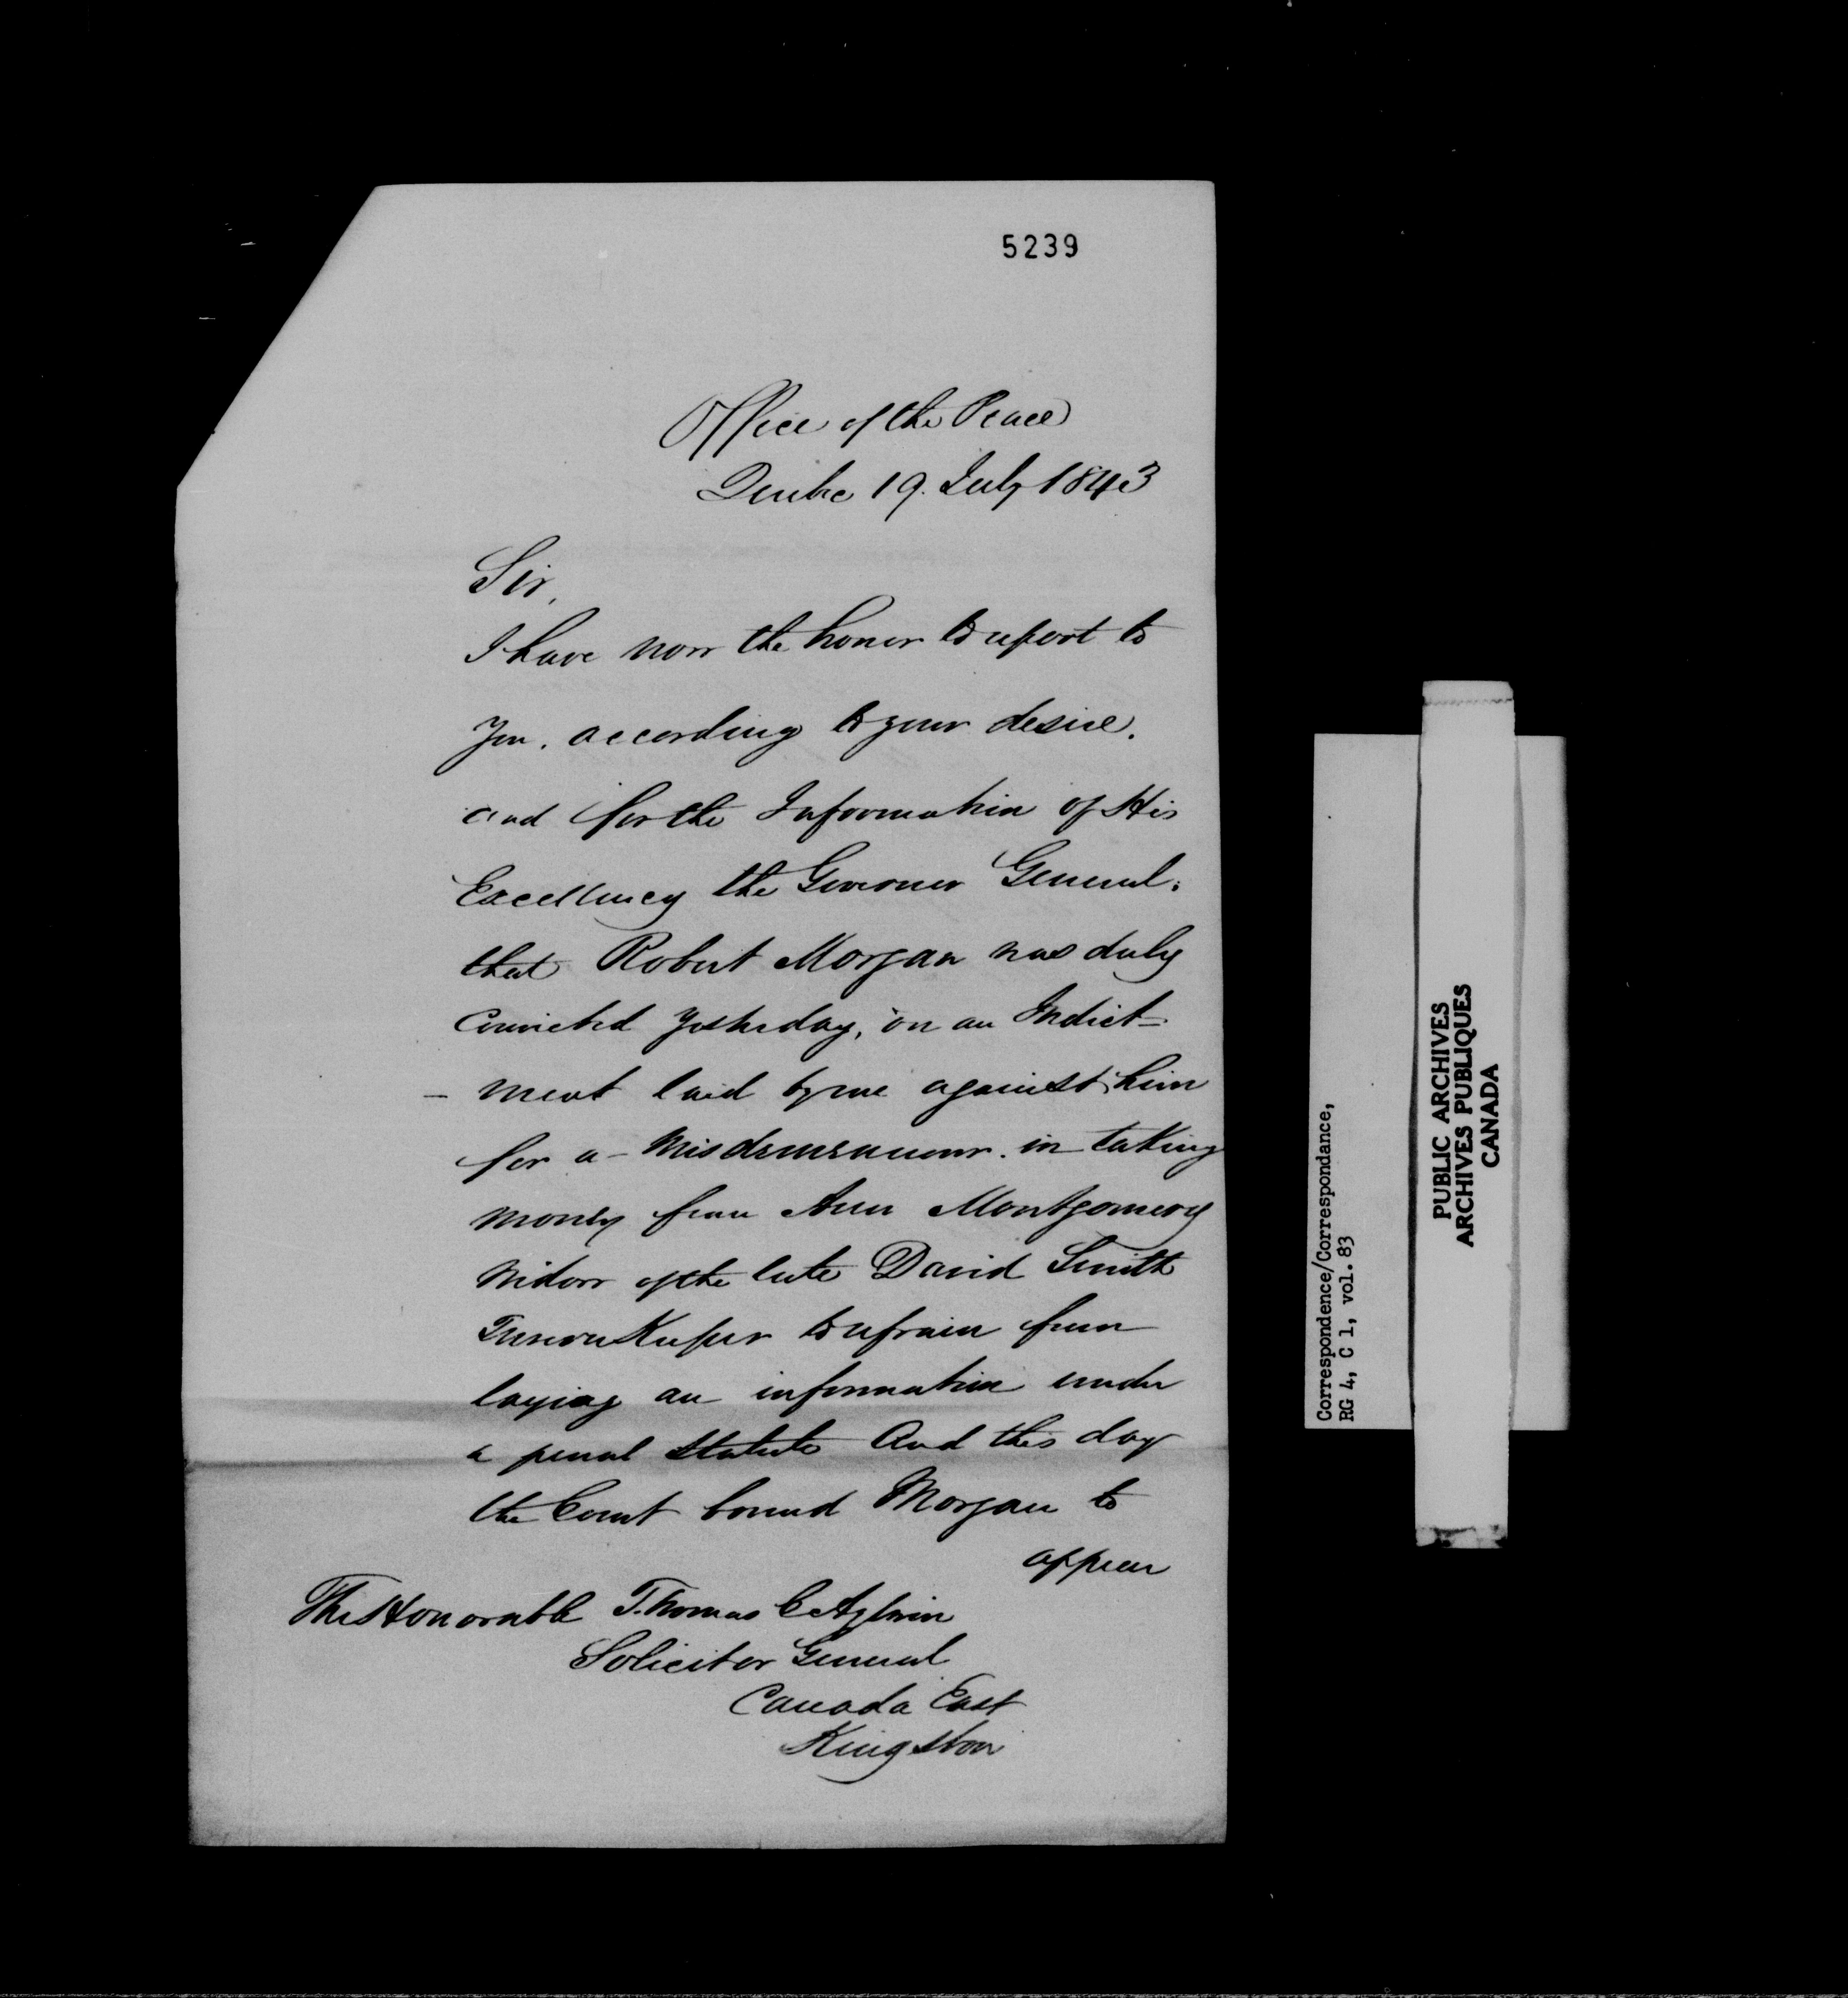 5239
Office of the Peace
Quebec 19. July 1843
Sir,
I have now the honor to report to
You, according to your desire,
and for the Information of His
Excellency the Governor General,
that Robert Morgan was duly
Convicted yesterday, on an Indict-
- ment laid by me against him
for a Misdemeanour in taking
money from Ann Montgomery
Widow of the late David Smith
Tavern Keeper to refrain from
laying an information under
a penal Statute And this day
the Court bound Morgan to
appear
The Honorable Thomas C Aylwin
Solicitor General
Canada East
Kingston
Correspondence/Correspondance,
RG 4, C 1, vol. 83
PUBLIC ARCHIVES
ARCHIVES PUBLIQUES
CANADA